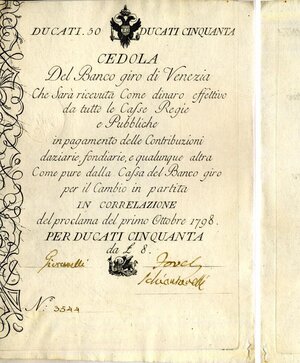 DUCATI. 50 DUCATI CINQUANTA
CEDOLA
Del Banco giro di Venezia
Che Sarà ricevuta Come dinaro effettivo
da tutte le Casse Regie
e Pubbliche
in pagamento delle Contribuzioni
daziarie, fondiarie, e qualunque altra
Come pure dalla Cassa del Banco giro
per il Cambio in partita
IN CORRELAZIONE
del proclama del primo Ottobre 1798.
PER DUCATI CINQUANTA
da £ 8.
N.° 3544